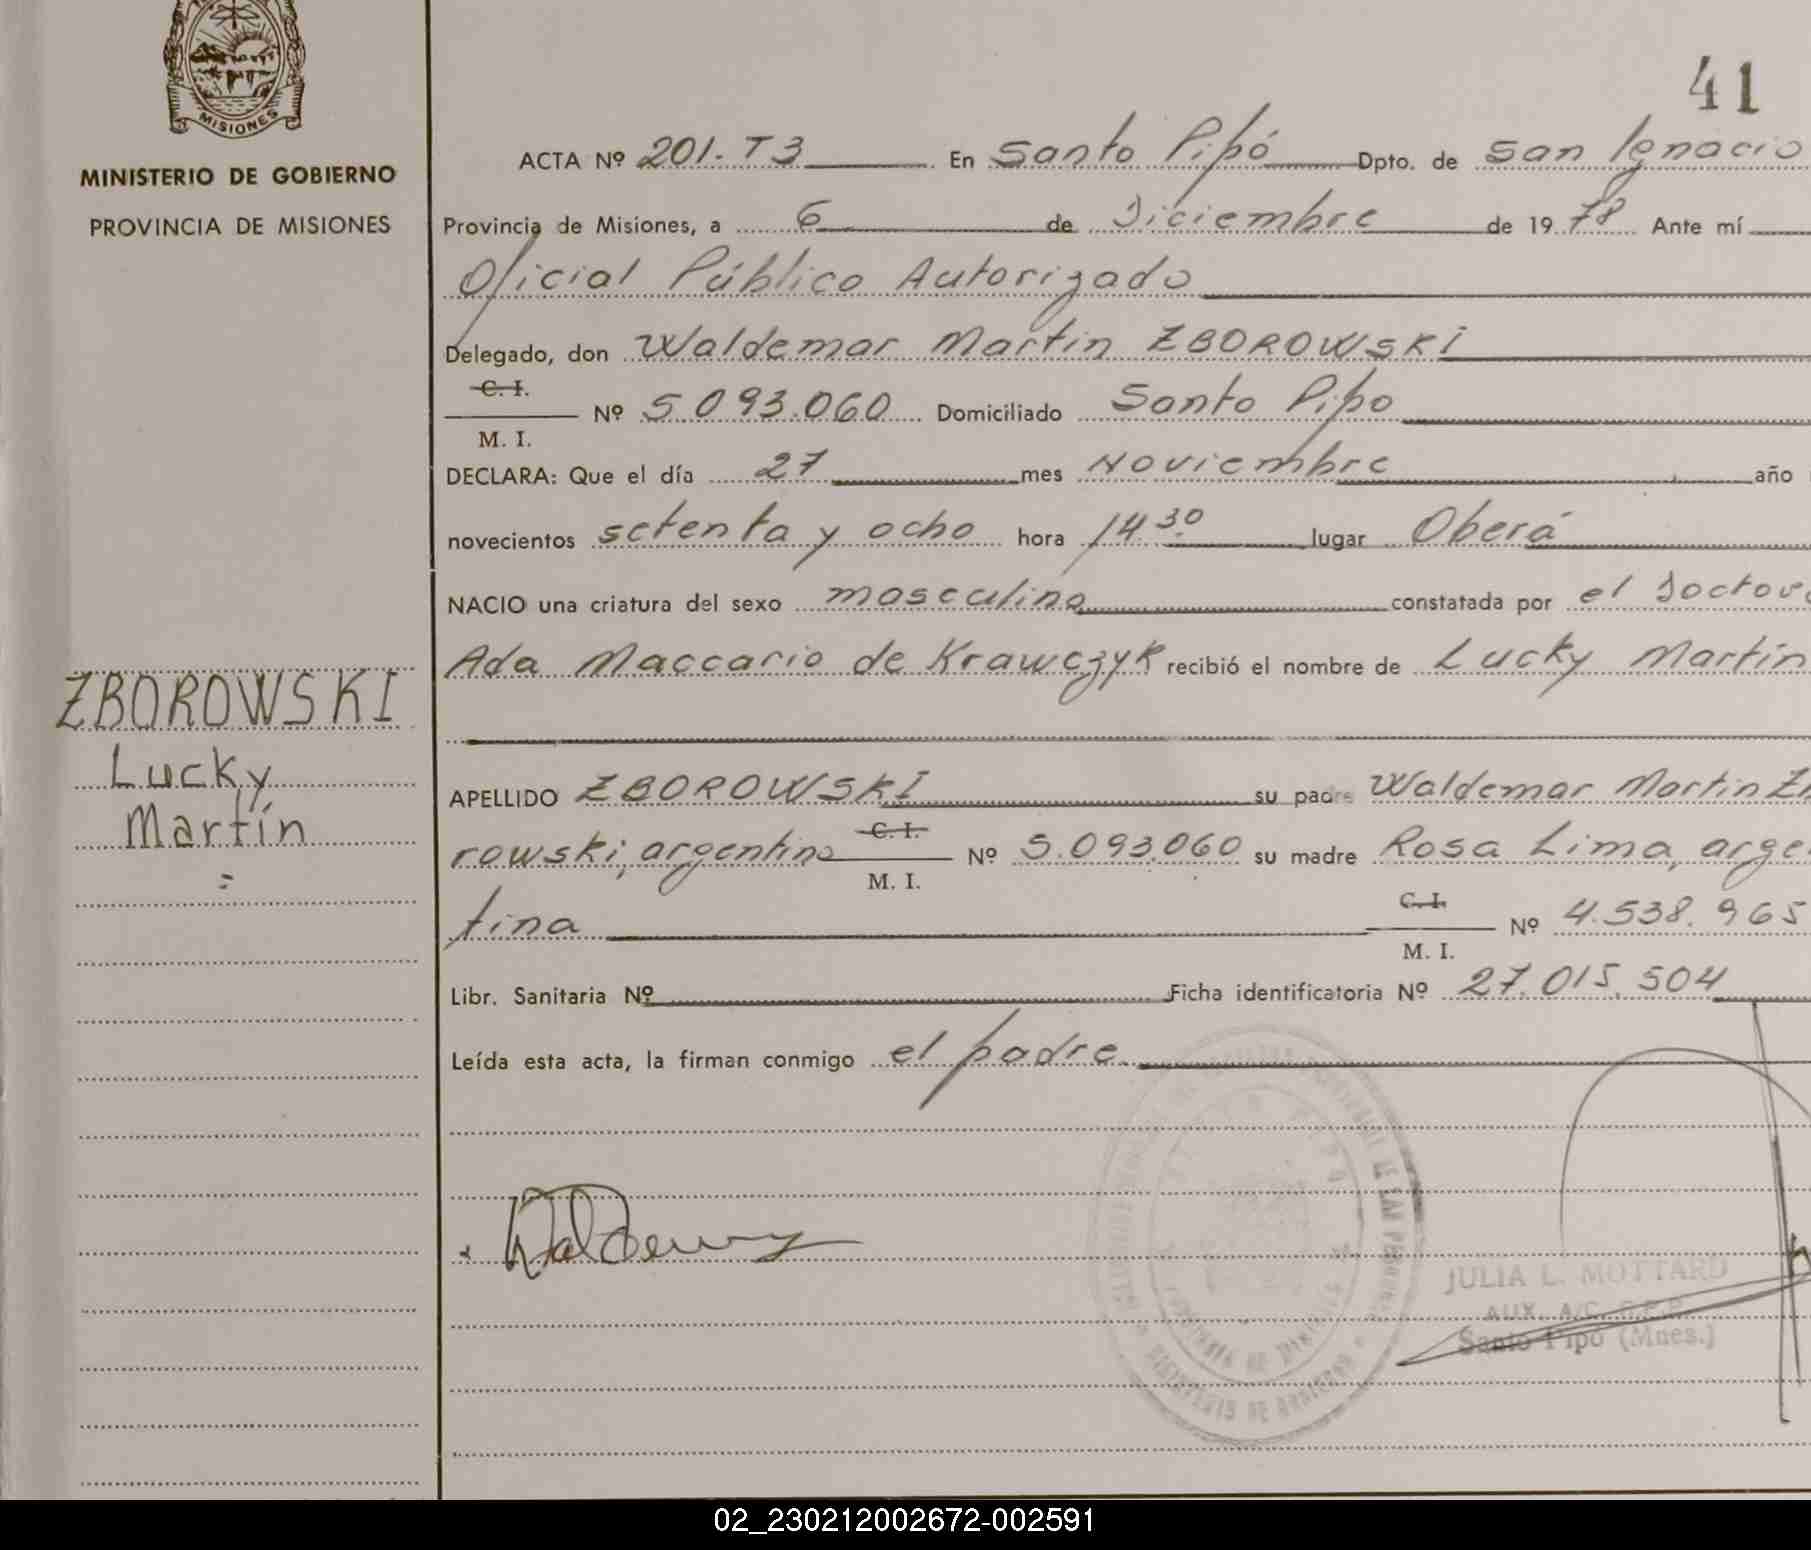 41
MISIONES
MINISTERIO DE GOBIERNO
PROVINCIA DE MISIONES
ZBOROWSKI
Lucky
Martín
ACTA Nº 201-T3 En Santo Pipó Dpto. de San Ignacio
Provincia de Misiones, a 6 de Diciembre de 1978 Ante mí
Oficial Público Autorizado
Delegado, don Waldemar Martin ZBOROWSKI
C. I.
Nº 5.093.060 Domiciliado Santo Pipo
M. I.
DECLARA: Que el día 27 mes Noviembre año
novecientos setenta y ocho hora 14.30 lugar Oberá
NACIO una criatura del sexo masculino constatada por el Doctor
Ada Maccario de Krawczyk recibió el nombre de Lucky Martín
APELLIDO ZBOROWSKI su padre Waldemar Martin Zbo
rowski, argentino C. I. Nº 5.093.060 su madre Rosa Lima, argen
M. I.
tina C. I. Nº 4.538.965
M. I.
Libr. Sanitaria Nº Ficha identificatoria Nº 27.015.504
Leída esta acta, la firman conmigo el padre
JULIA L. MOTTARD
AUX. A/C. R.P.P.
Santo Pipó (Mnes.)
02_230212002672-002591